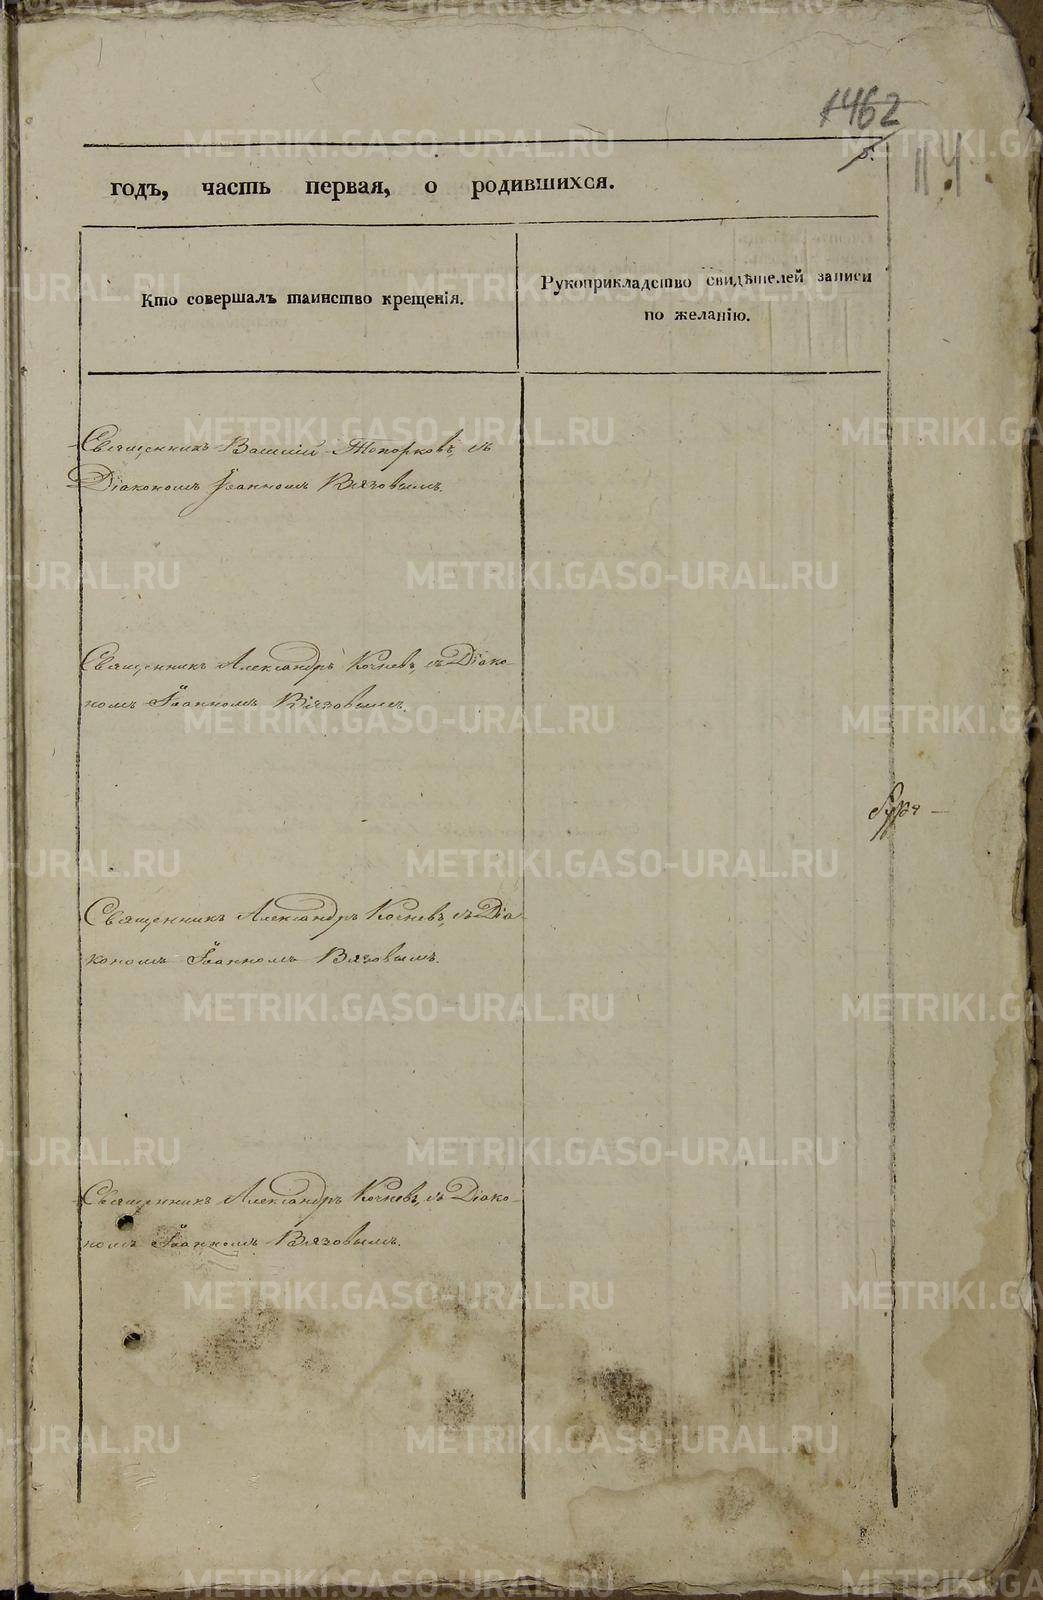 1462
5.
114
годъ, часть первая, о родившихся.
Кто совершалъ таинство крещенія.
Рукоприкладство свидѣтелей записи
по желанію.
Священникъ Василій Топорковъ, съ
Діакономъ Іоанномъ Вязовымъ.
Священникъ Александръ Кочневъ, съ Діако-
номъ Іоанномъ Вязовымъ.
Священникъ Александръ Кочневъ, съ Діа-
кономъ Іоанномъ Вязовымъ.
Священникъ Александръ Кочневъ, съ Діако-
номъ Іоанномъ Вязовымъ.
METRIKI.GASO-URAL.RU